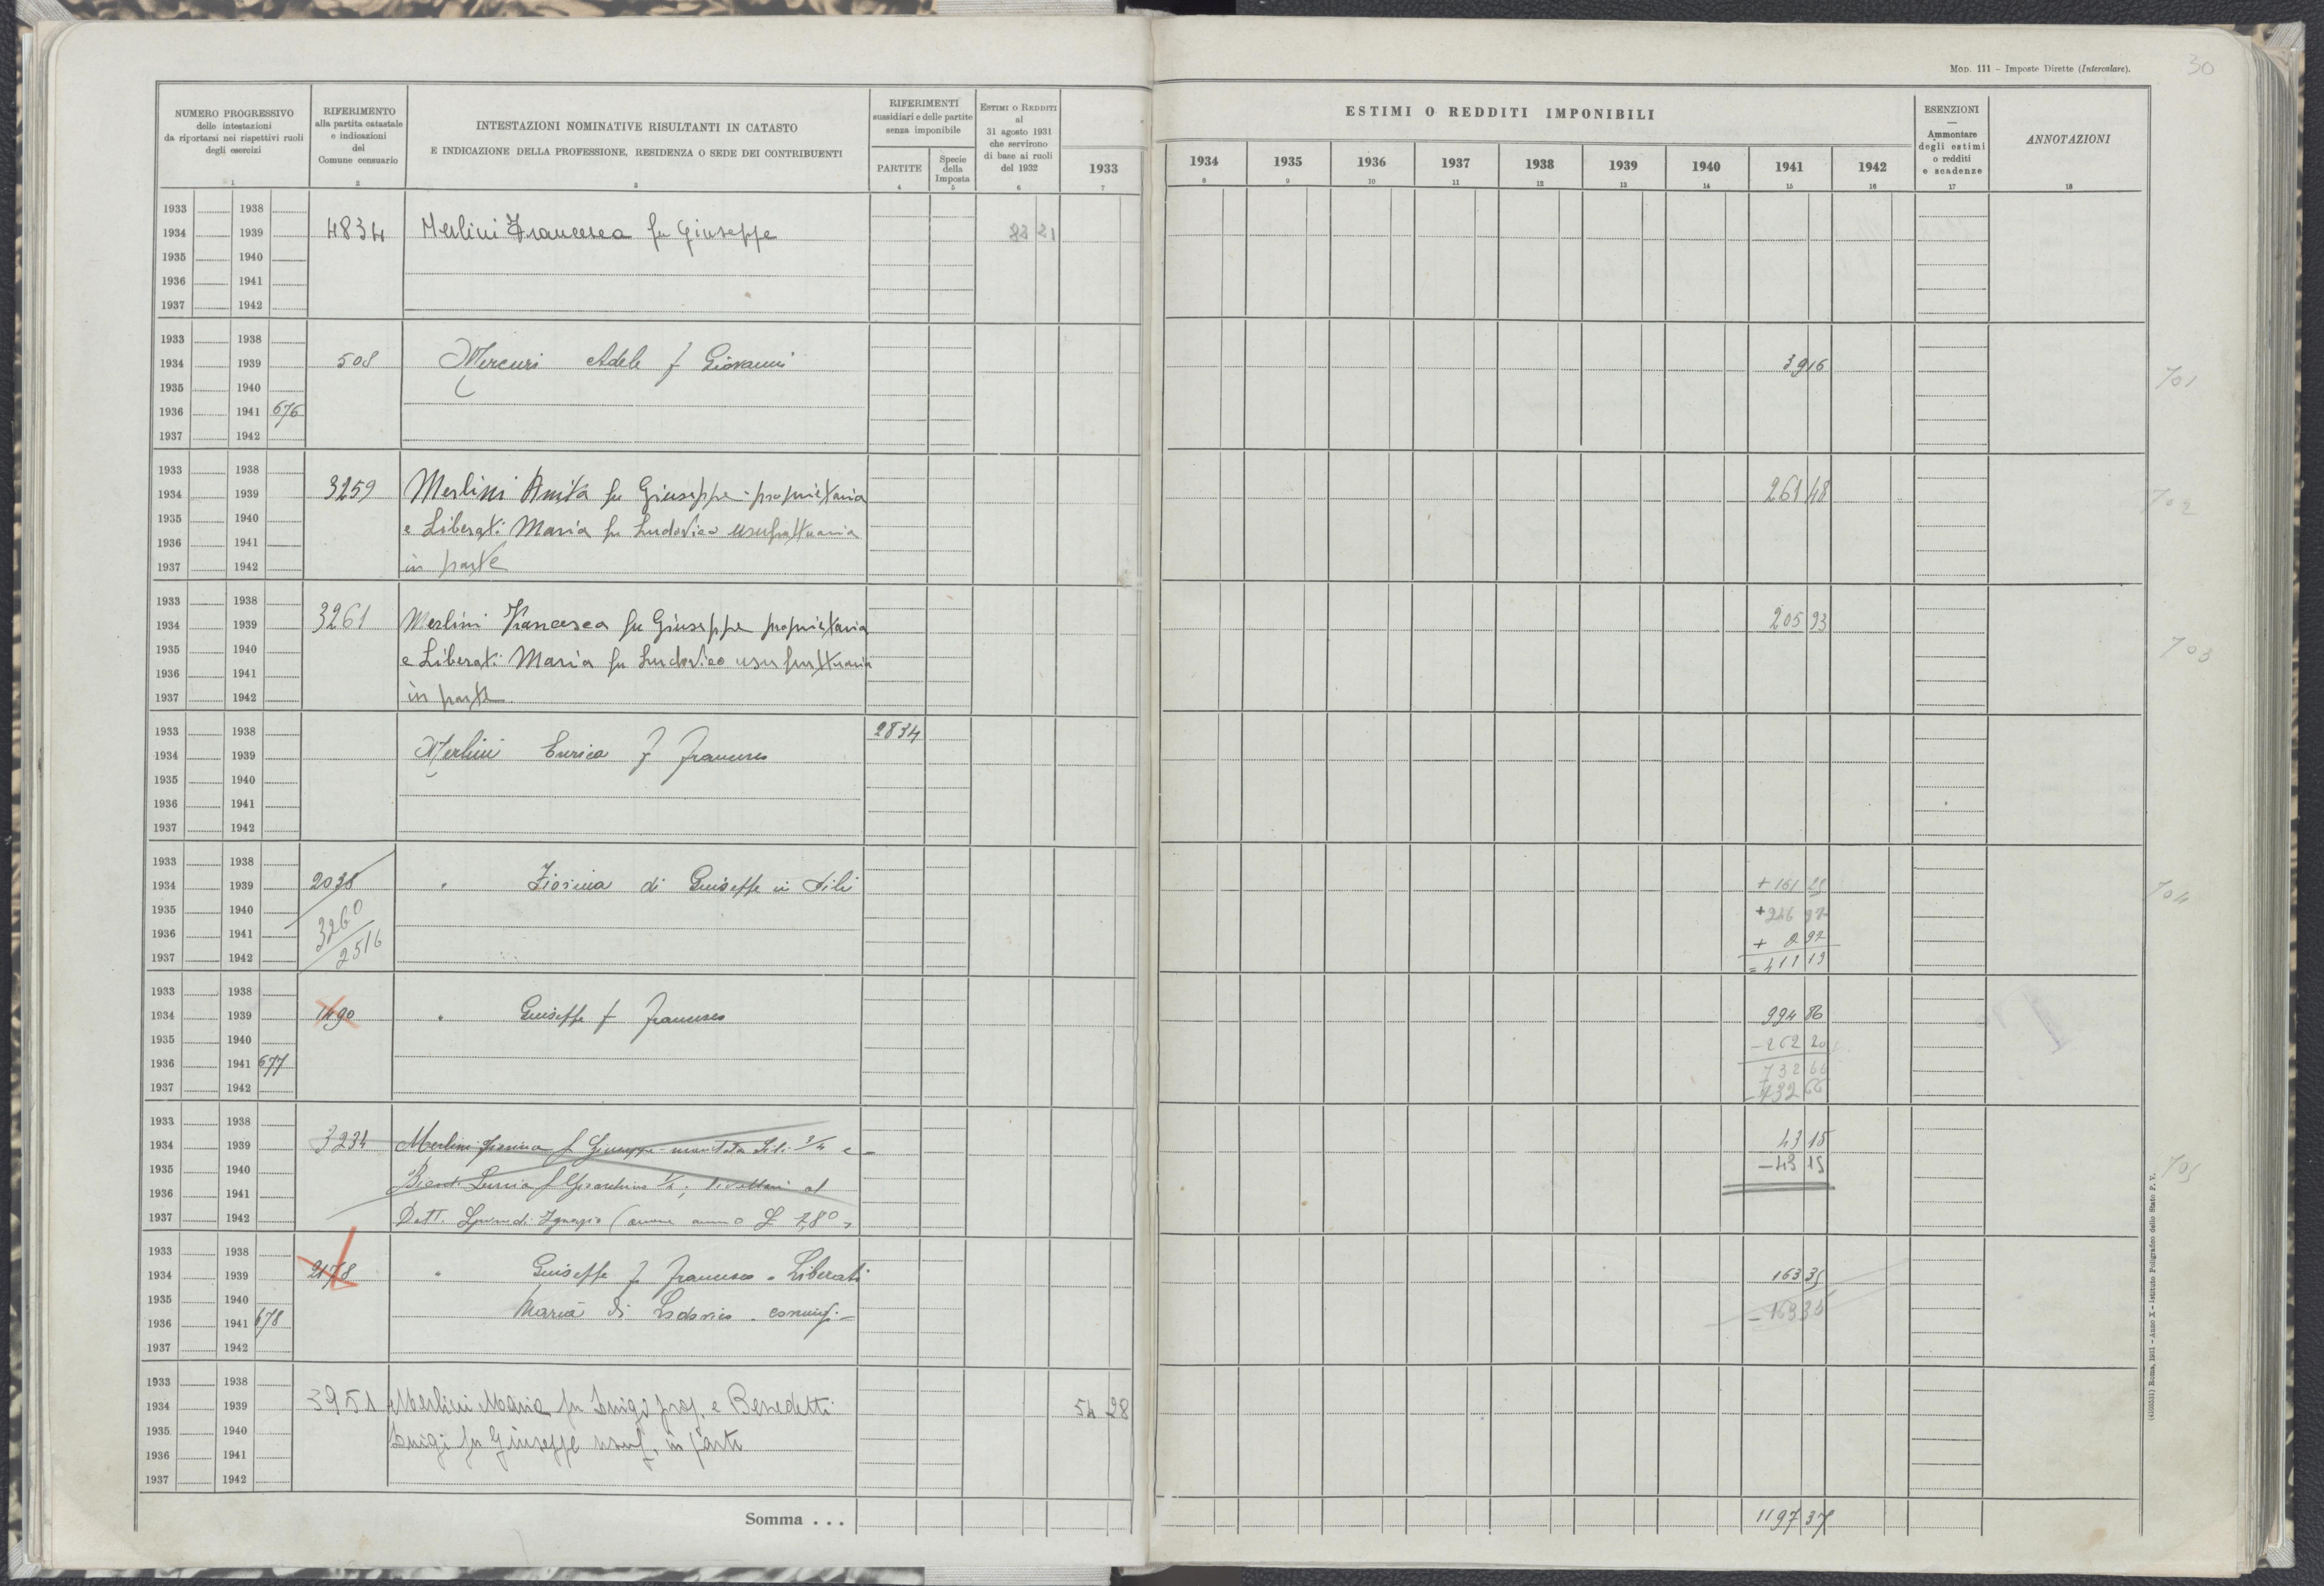 MOD. 111 - Imposte Dirette (Intercalare).
30
NUMERO PROGRESSIVO
delle intestazioni
da riportarsi nei rispettivi ruoli
degli esercizi
1
RIFERIMENTO
alla partita catastale
e indicazioni
del
Comune censuario
2
INTESTAZIONI NOMINATIVE RISULTANTI IN CATASTO
E INDICAZIONE DELLA PROFESSIONE, RESIDENZA O SEDE DEI CONTRIBUENTI
3
RIFERIMENTI
sussidiari e delle partite
senza imponibile
PARTITE
4
Specie
della
Imposta
5
ESTIMI O REDDITI
al
31 agosto 1931
che servirono
di base ai ruoli
del 1932
6
1933
7
ESTIMI O REDDITI IMPONIBILI
1934 1935 1936 1937 1938 1939 1940 1941 1942
8 9 10 11 12 13 14 15 16
ESENZIONI
—
Ammontare
degli estimi
o redditi
e scadenze
17
ANNOTAZIONI
18
1933 1938
1934 1939 4834 Merlini Francesca fu Giuseppe 21
1935 1940
1936 1941
1937 1942
1933 1938
1934 1939 508 Mercuri Adele f Giovanni 39 16
701
1935 1940
1936 1941 676
1937 1942
1933 1938
1934 1939 3259 Merlini Anita fu Giuseppe - proprietaria 261 48
702
1935 1940 e Liberati Maria fu Ludovico usufruttuaria
1936 1941
1937 1942 in parte
1933 1938
1934 1939 3261 Merlini Francesca fu Giuseppe proprietaria 205 93
703
1935 1940 e Liberati Maria fu Ludovico usufruttuaria
1936 1941
1937 1942 in parte
1933 1938 2834
1934 1939 Merlini Enrica f Francesco
1935 1940
1936 1941
1937 1942
1933 1938
1934 1939 2038 " Fiorina di Giuseppe in Sili + 161 29
704
1935 1940 3260 + 246 97
1936 1941 2516 + 2 92
1937 1942 = 411 19
1933 1938
1934 1939 1490 " Giuseppe f Francesco 994 86
1935 1940 - 262 20
1936 1941 677 732 66
1937 1942 - 732 66
1933 1938
1934 1939 3234 Merlini Fiorina f Giuseppe maritata Sili 3/4 e 43 15
1935 1940 - 43 15
705
1936 1941
1937 1942
1933 1938
1934 1939 2178 " Giuseppe f Francesco e Liberati 163 35
1935 1940 Maria di Lodovico coniugi - 163 35
1936 1941 678
1937 1942
1933 1938
1934 1939 3951 Merlini Maria fu Luigi prop. e Benedetti 54 28
1935 1940 Luigi fu Giuseppe usuf. in parte
1936 1941
1937 1942
Somma . . . 1197 37
(4103531) Roma, 1931 - Anno X - Istituto Poligrafico dello Stato P. V.